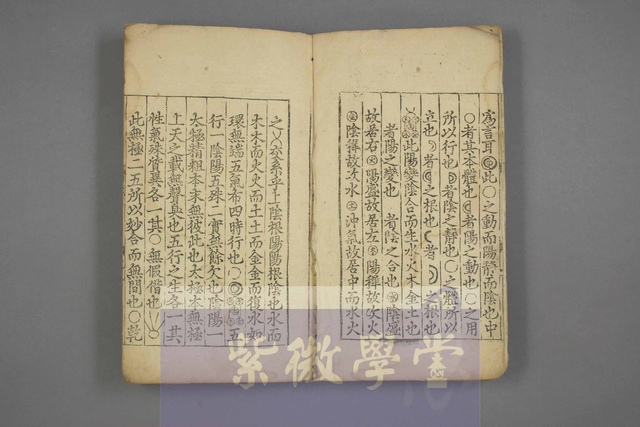 為言耳○此○之動而陽靜而陰也中
○者其本體也○者陽之動也○之用
所以行也○者陰之靜也○之體所以
立也○者○之根也○者○之根也
此陽變陰合而生水火木金土也
者陽之變也 者陰之合也水陰盛
故居右火陽盛故居左木陽穉故次火
金陰穉故次水土沖氣故居中而水火
之乂交系乎上陰根陽陽根陰也水而
木木而火火而土土而金金而復水如
環無端五氣布四時行也○ 五
行一陰陽五殊二實無餘欠也陰陽一
太極精粗本末無彼此也太極本無極
上天之載無聲臭也五行之生各一其
性氣殊質異各一其○無假借也
此無極二五所以妙合而無間也○乾
紫微學堂